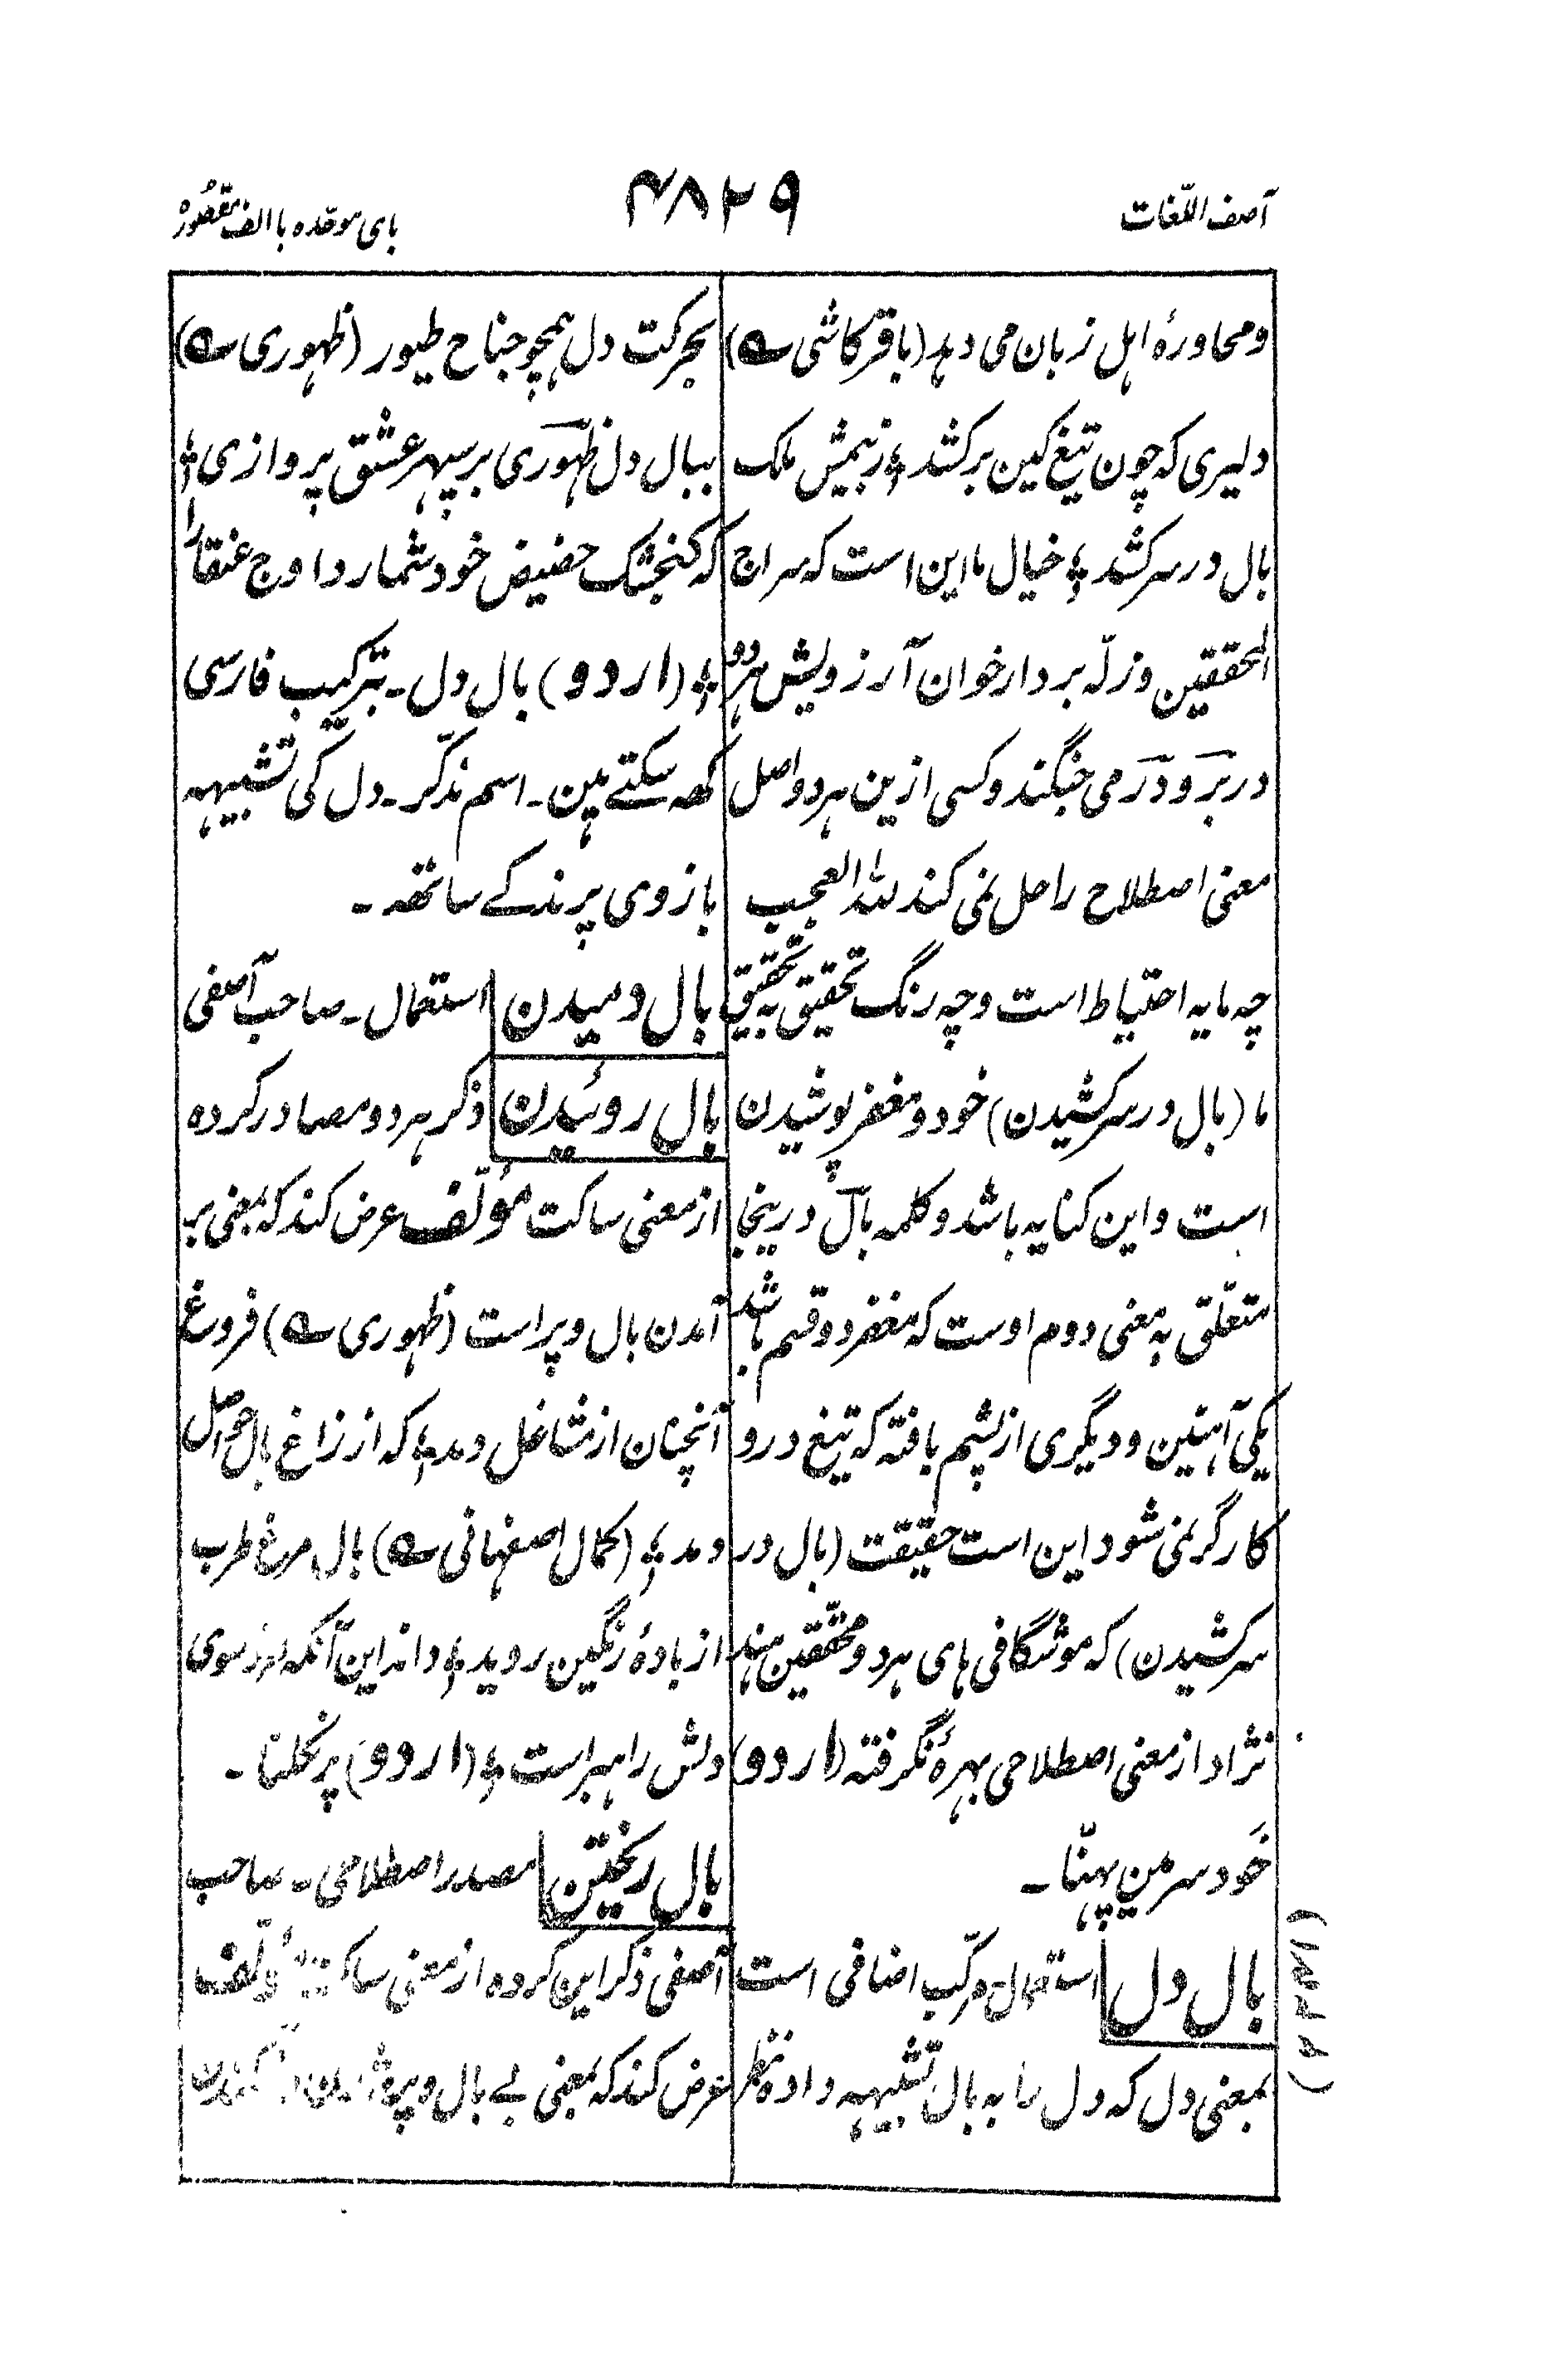 آصف اللّغات
۴۸۲۹
بای موحّده با الف مقصُورہ
و محاورۂ اہل زبان می دہد (باقر کاشی ؎)
دلیری کہ چون تیغ کین بر کشد ؛ ز بیمش ملک
بال در سر کشد ؛ خیال ما این است کہ سراج
المحققین و زلّہ بردار خوان آرزویش ہردو
در بَر و دَر می جنگند و کسی ازین ہردو اصل
معنی اصطلاح را حل نمی کند للّٰہ العجب
چہ مایہ احتیاط است و چہ رنگ تحقیق بہ تحقیق
ما (بال در سر کشیدن) خود و مغفر پوشیدن
است و این کنایہ باشد و کلمہ بال درینجا
متعلّق بہ معنی دوم اوست کہ مغفر دو قسم باشد
یکی آہنین و دیگری از پشم بافتہ کہ تیغ درو
کارگر نمی شود این است حقیقت (بال در
سر کشیدن) کہ موشگافی ہای ہردو محققین ہند
نژاد از معنی اصطلاحی بہرۂ نگرفتہ (اردو)
خَود سر مین پہنّا۔
بال دل استعمال۔ مرکّب اضافی است
بمعنی دل کہ دل را بہ بال تشبیہہ دادہ نظر
بحرکت دل ہمچو جناح طیور (ظہوری ؎)
ببال دل ظہوری بر سپہر عشق پروازی ؛
کہ کنجشک حضیض خود شمارد اوج عنقا را
؛ (اردو) بال دل۔ بترکیب فارسی
کہہ سکتے ہین۔ اسم مذکّر۔ دل کی تشبیہہ
بازوی پرند کے ساتھہ۔
بال دمیدن استعمال۔ صاحب آصفی
بال روئیدن ذکر ہردو مصادر کردہ
از معنی ساکت مؤلّف عرض کند کہ بمعنی بر
آمدن بال و پر است (ظہوری ؎) فروغ
آنچنان از مشاغل دمد ؛ کہ از زاغ بال حواصل
دمد ؛ (کمال اصفہانی ؎) بال مرغ طرب
از بادۂ رنگین روید ؛ داند این آنکہ سوی
دلش راہبر است ؛ (اردو) پر نکلنا۔
بال ریختن مصدر اصطلاحی۔ صاحب
آصفی ذکر این کردہ از معنی ساکت مؤلّف
عرض کند کہ بمعنی بے بال و پر شدن